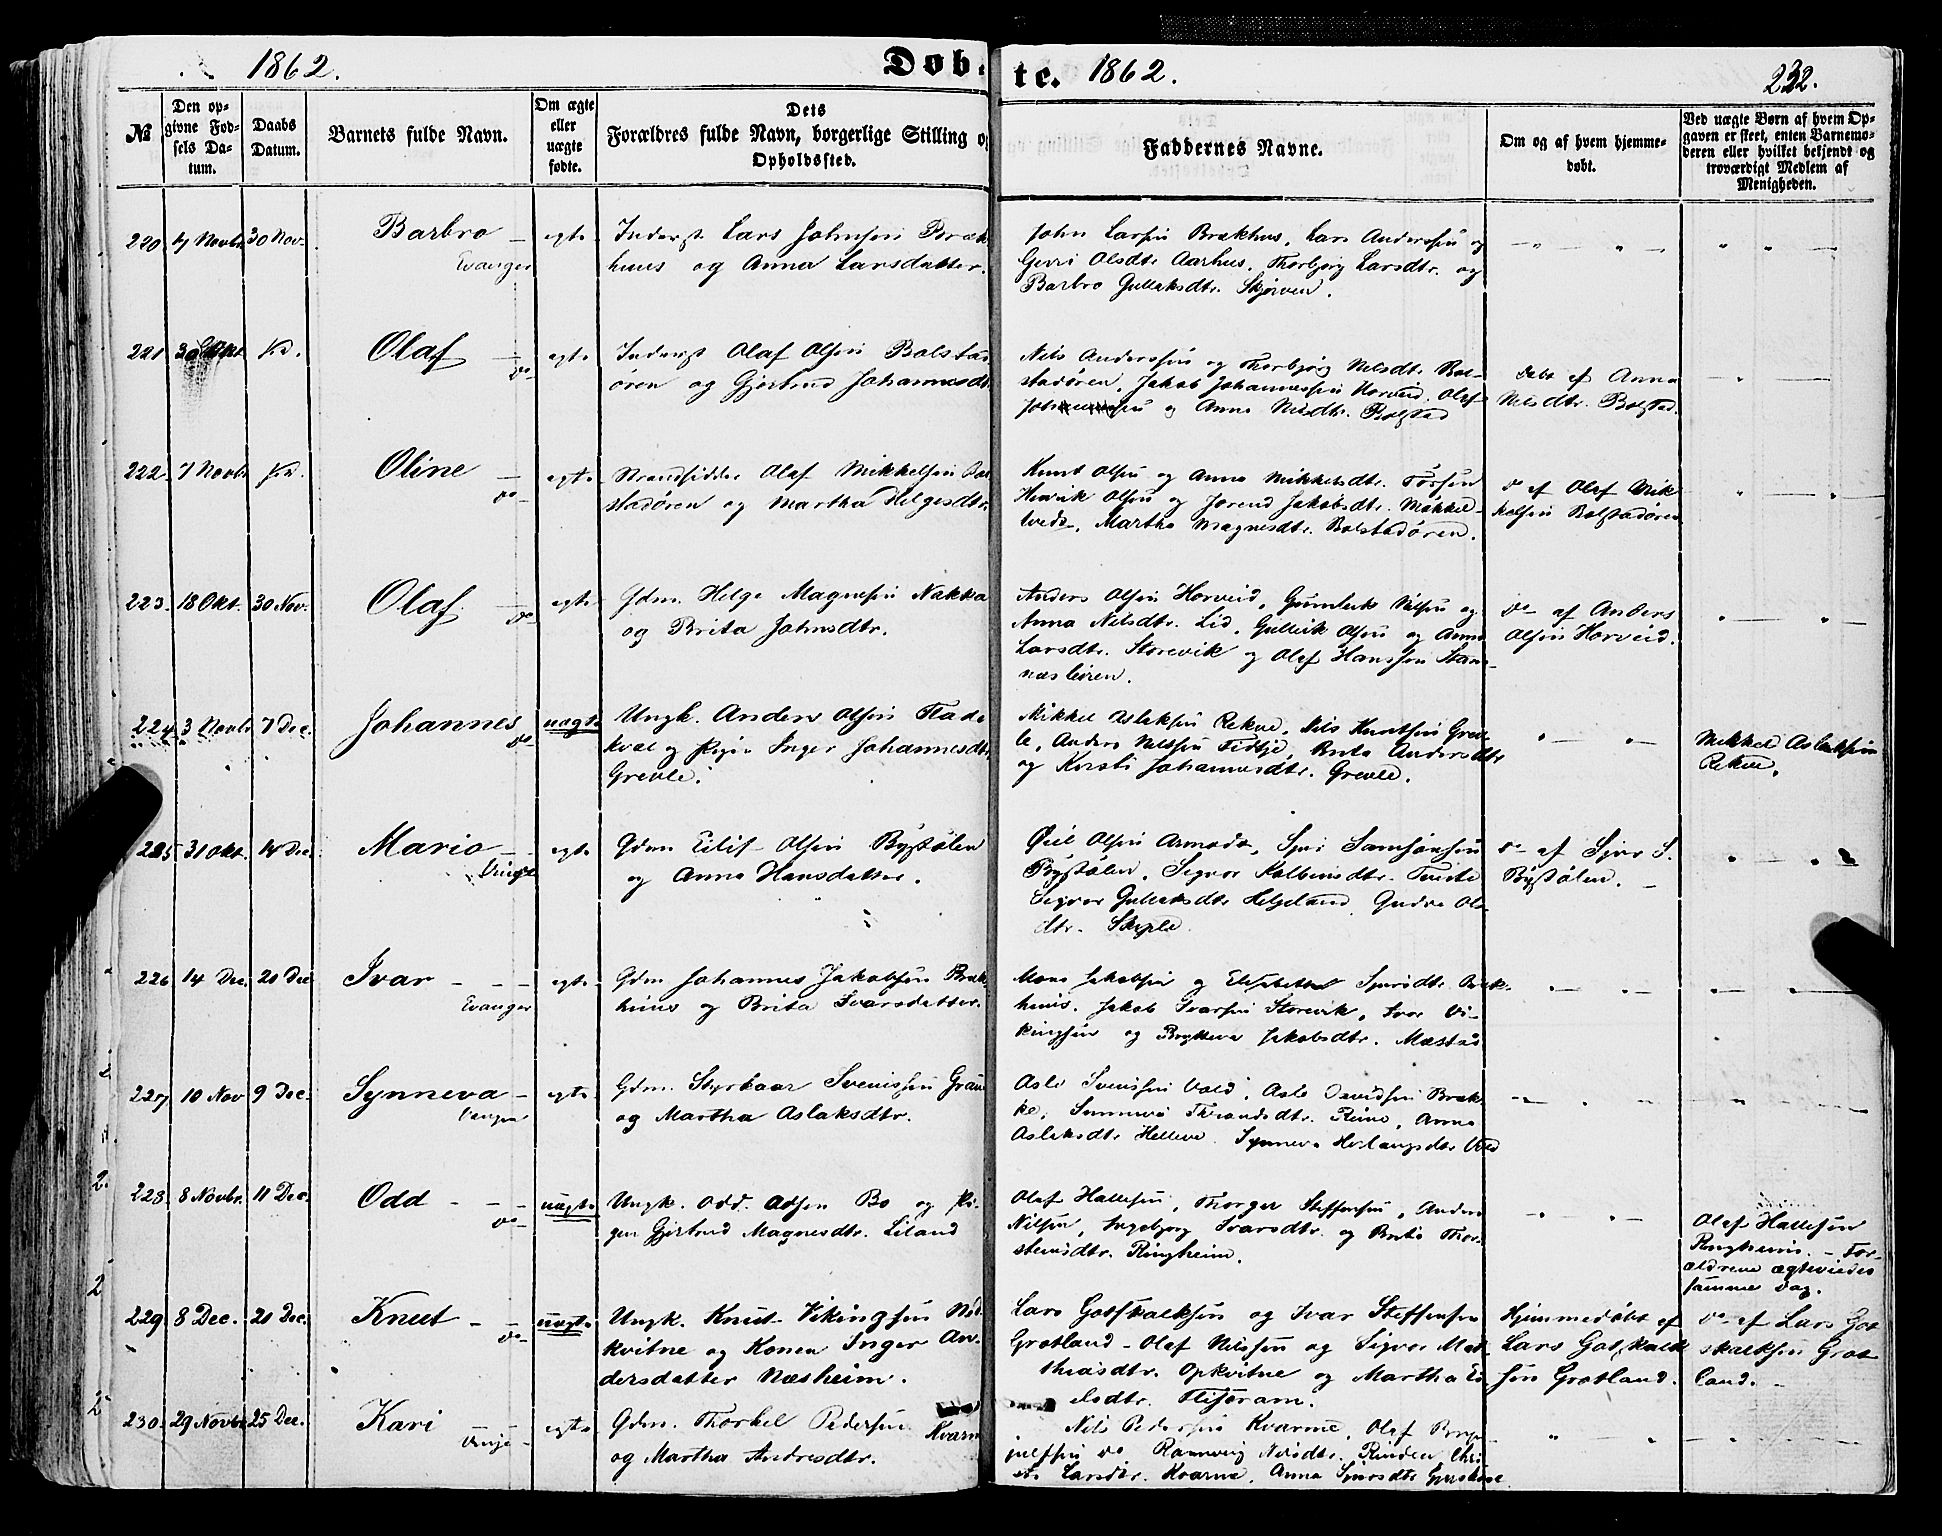 1862. Døbte. 1862. 232.
№ Den opgivne Fødsels Datum. Daabs Datum. Barnets fulde Navn. Om ægte eller uægte fødte. Dets Forældres fulde Navn, borgerlige Stilling og Opholdssted. Faddernes Navne. Om og af hvem hjemmedøbt. Ved uægte Børn af hvem Opgaven er skeet, enten Barnemoderen eller hvilket bekjendt og troværdigt Medlem af Menigheden.
220. Novbr. 30 Nov. Barbro Evanger egte Inderst Lars Johnsen Bræk-
huus og Anna Larsdatter.
John Larsen Brækhus, Lars Anderssen og
Olsdtr. Aarhus, Thorbjørg Larsdtr. og
Barbro Gullaksdtr. Skjerven.
221. 30 Okt. Olaf do egte Inderst Olaf Olsen Bolstad
øren og Gjertrud Johannesdt
Nils Anderssen og Thorbjørg Nilsdtr. Bol-
stadøren, Jakob Johannessen Horveid, Olaf
og Anna Nilsdtr. Bolstad
Døbt af Anna
Nilsdtr. Bolstad.
222. 7 Novbr Oline do egte Strandsidder Olaf Mikkelsen Bol
stadøren og Martha Helgesdtr.
Knut Olsen og Anna Mikkelsdtr. Fosse
Henrik Olsen og Jorend Jakobsdtr. Mikkel-
tveds, Martha Magnesdtr. Bolstadøren.
do af Olaf Mik-
kelsen Bolstadøren
223. 18 Okt. 30 Nov. Olaf do egte Gdm. Helge Magnesen Nakka
og Brita Johnsdtr.
Anders Olsen Horveid, Gunleik Nilsen og
Anna Nilsdtr. Lid, Gullik Olsen og Anna
Larsdtr. Storevik og Olaf Hanssen Stam-
næsleiren.
do af Anders
Olsen Horveid.
224. 3 Novbr 7 Dec. Johannes do uægte Ungk. Anders Olsen Flade
kval og Pigen Inger Johannesdtr.
Grevle.
Mikkel Aslaksen Rekve, Nils Knutsen Grev-
le, Anders Nilssen Fedtje, Brita Andersdtr
og Kersti Johannesdtr. Grevle.
Mikkel Aslaksen
Rekve.
225 31 Okt. 14 Dec. Maria Vinge egte Gdm Eilif Olsen Bystølen
og Anna Hansdatter.
Olsen Sjur Samsonsen
Bystølen, Sigvor Kolbensdtr.
Sigvor Gullaksdtr Helgeland, Gudve Ols-
dtr. Skiple
do af Sjur S.
Bystølen.
226 14 Dec. 21 Dec Ivar Evanger egte Gdm Johannes Jakobsen Bræk-
huus og Brita Ivarsdatter.
Mons Jakobsen og Elisabeth Sjursdtr. Bræk-
huus. Jakob Ivarsen Storevik, Ivar Vi-
kingsen og Brytteva Jakobsdtr. Mæstad
227. 10 Nov 9 Dec. Synneva Vanger egte Gdm. Styrkaar Svenissen Graue
og Martha Aslaksdtr.
Asle Svenissen Vold, Asle Davidsen Bræk-
ke, Sunneva Thrandsdtr. Rene, Anna
Aslaksdtr Helleve. Synneva Herlaugsdtr Vold
228. 8 Novbr. 11 Dec. Odd do uægte Ungk. Odd. Odsen Bø og Pi-
gen Gjertrud Magnesdtr. Liland
Olaf Hallesen, Thorger Steffensen, Anders
Nilsen, Ingebjørg Ivarsdtr. og Brita Thor-
steinsdtr. Ringheim.
Olaf Hallesen
Ringheim. - For-
ældrene ægteviedes
samme Dag.
229. 8 Dec. 21 Dec. Knut do uægte Ungk. Knut Vikingsen Ned
kvitne og Konen Inger An-
dersdatter Næsheim.
Lars Gotskalksen og Ivar Steffensen
Grotland - Olaf Nilssen og Sigvor Mat-
thiasdtr. Opkvitne og Martha
Hjemmedøbt af
Lars Gotskalk-
sen Grotland.
do af Lars Got
skalksen Grot
land.
230. 29 Novbr 25 Dec. Kari Vinje egte Gdm. Thorkel Pedersen Kvarm
og Martha Andresdtr.
Nils Pedersen Kvarme, Olaf
do Rannveig Nilsdtr. Rinden, Chri
Larsdtr. Kvarme, Anna Sjursdtr